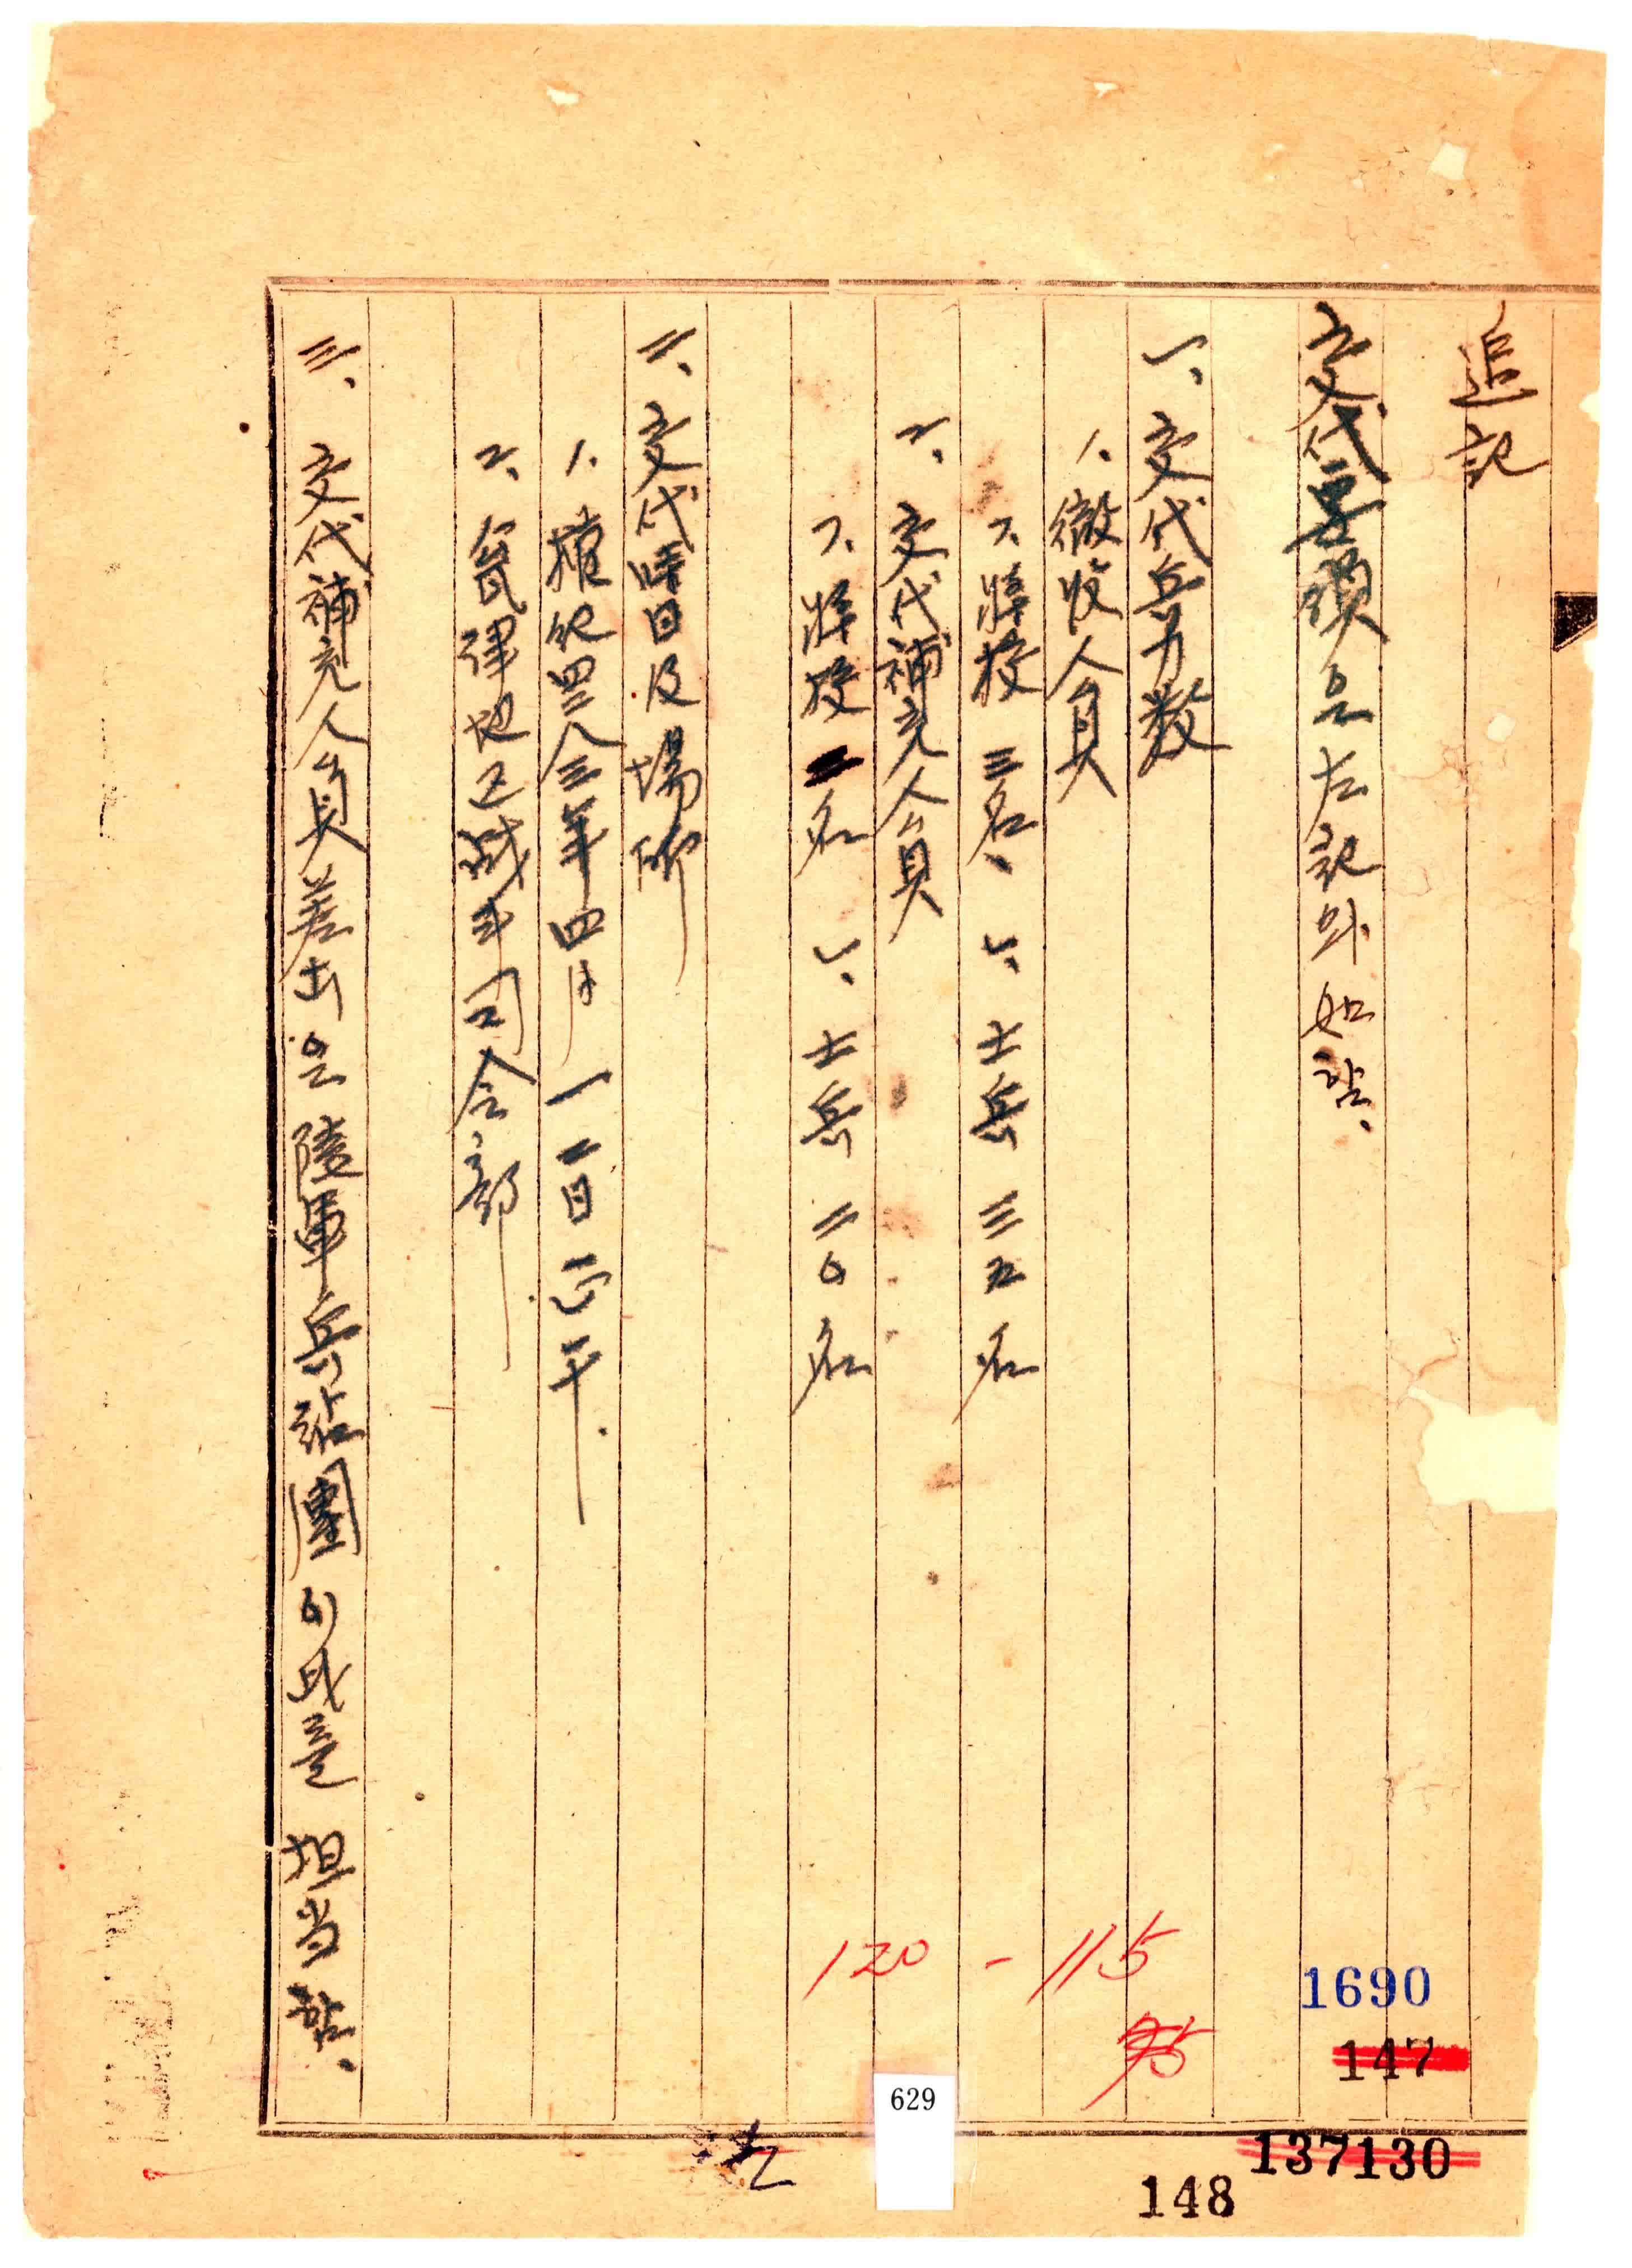 追記
交代要領은左記와如함、
一、交代兵力数
1、徴收人員
ㄱ、將校 三名、 ㄴ、士兵 三五名
2、交代補充人員
ㄱ、將校 二名 ㄴ、士兵 二〇名
二、交代時日及場所
1、檀紀四二八三年四月一二日正午
2、甕津地区戦斗司令部
三、交代補充人員差出은陸軍兵站團이此를担当함、
120 - 115
1690
147
137130
148
629